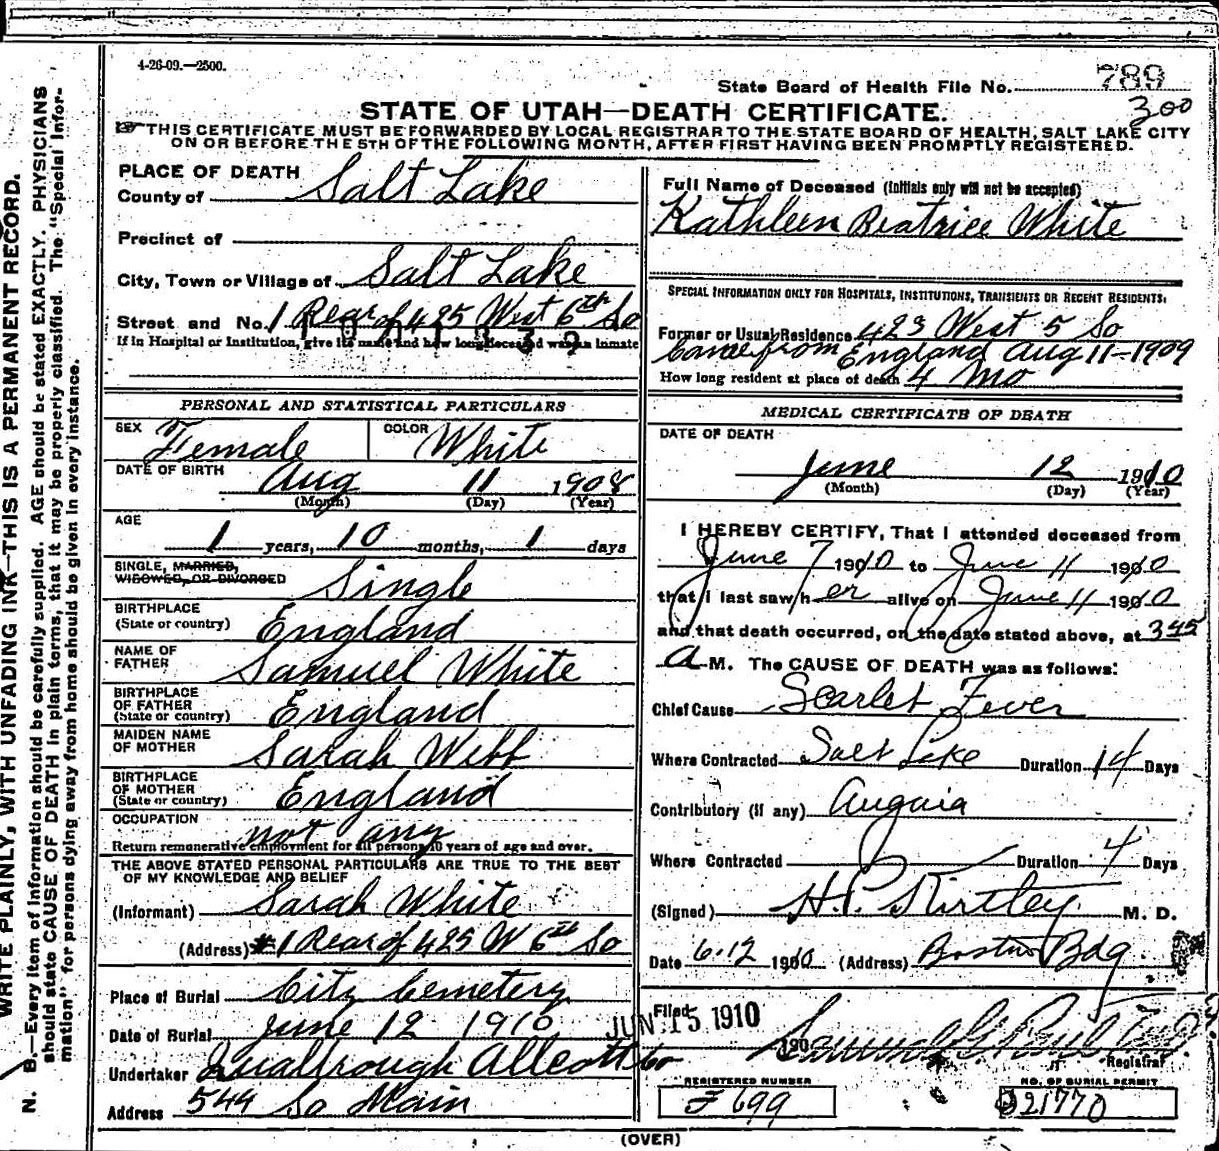 4-26-09.—2500.
State Board of Health File No. 789
300
STATE OF UTAH—DEATH CERTIFICATE.
THIS CERTIFICATE MUST BE FORWARDED BY LOCAL REGISTRAR TO THE STATE BOARD OF HEALTH, SALT LAKE CITY
ON OR BEFORE THE 5TH OF THE FOLLOWING MONTH, AFTER FIRST HAVING BEEN PROMPTLY REGISTERED.
PLACE OF DEATH
County of Salt Lake
Precinct of
City, Town or Village of Salt Lake
Street and No. 1 Rear of 425 West 6th So
If in Hospital or Institution, give its name and how long deceased was an inmate
PERSONAL AND STATISTICAL PARTICULARS
SEX Female COLOR White
DATE OF BIRTH Aug 11 1908
(Month) (Day) (Year)
AGE
1 years, 10 months, 1 days
SINGLE, MARRIED,
WIDOWED, OR DIVORCED Single
BIRTHPLACE
(State or country) England
NAME OF
FATHER Samuel White
BIRTHPLACE
OF FATHER
(State or country) England
MAIDEN NAME
OF MOTHER Sarah Webb
BIRTHPLACE
OF MOTHER
(State or country) England
OCCUPATION not any
Return remunerative employment for all persons 10 years of age and over.
THE ABOVE STATED PERSONAL PARTICULARS ARE TRUE TO THE BEST
OF MY KNOWLEDGE AND BELIEF
(Informant) Sarah White
(Address) #1 Rear of 425 W 6th So
Place of Burial City Cemetery
Date of Burial June 12 1910
Undertaker Qualtrough Allcott Co
Address 549 So Main
Full Name of Deceased (Initials only will not be accepted)
Kathleen Beatrice White
SPECIAL INFORMATION ONLY FOR HOSPITALS, INSTITUTIONS, TRANSIENTS OR RECENT RESIDENTS.
Former or Usual Residence 423 West 5 So
Came from England Aug 11-1909
How long resident at place of death 4 Mo
MEDICAL CERTIFICATE OF DEATH
DATE OF DEATH
June 12 1910
(Month) (Day) (Year)
I HEREBY CERTIFY, That I attended deceased from
June 7 1910 to June 11 1910
that I last saw her alive on June 11 1910
and that death occurred, on the date stated above, at 345
A M. The CAUSE OF DEATH was as follows:
Chief Cause Scarlet Fever
Where Contracted Salt Lake Duration 14 Days
Contributory (if any) Angaia
Where Contracted Duration 4 Days
(Signed) H.P. Kirtley M. D.
Date 6-12 1910 (Address) Boston Bdg
Filed JUN 15 1910
190
Registrar
REGISTERED NUMBER NO. OF BURIAL PERMIT
F 699 J21770
(OVER)
WRITE PLAINLY, WITH UNFADING INK—THIS IS A PERMANENT RECORD.
N. B.—Every item of information should be carefully supplied. AGE should be stated EXACTLY. PHYSICIANS
should state CAUSE OF DEATH in plain terms, that it may be properly classified. The "Special Infor-
mation" for persons dying away from home should be given in every instance.